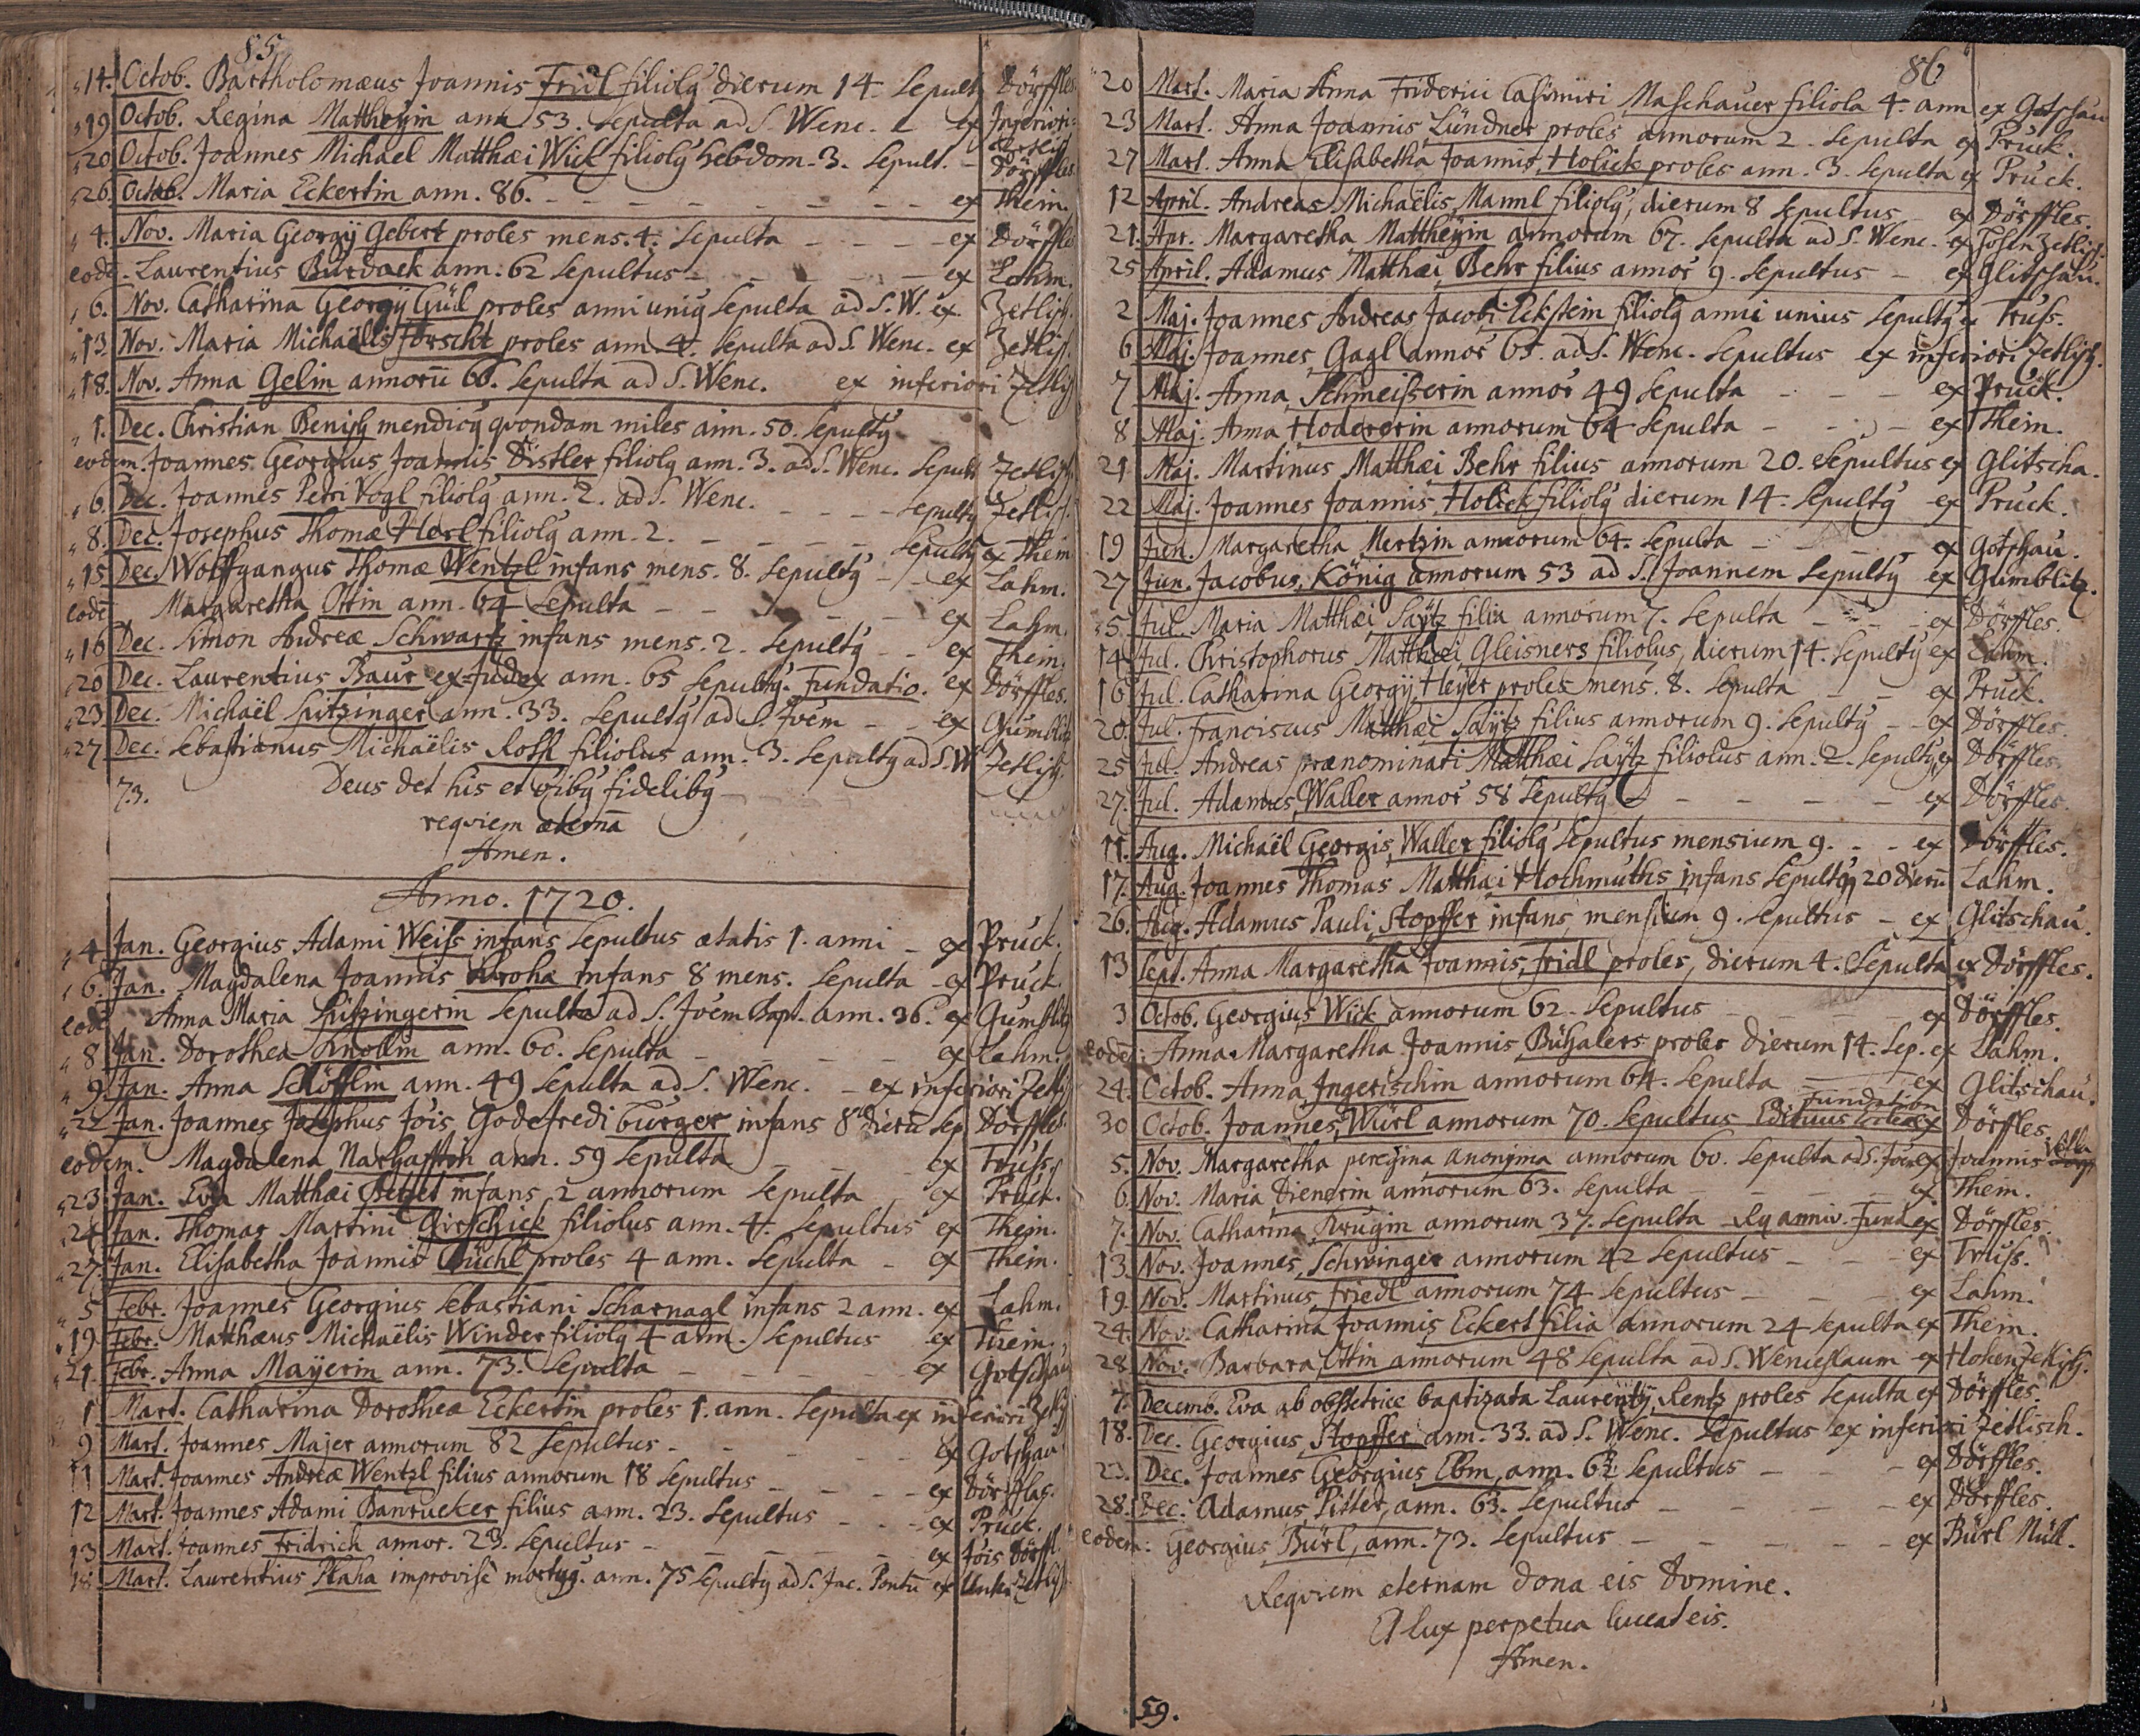 85
14. Octob. Bartholomæus Joannis Fridl filiolg dierum 14 Sepult Dörffles
19 Octob. Regina Mattheyin ann 53. Sepulta ad S. Wenc. ex Inferiori
20 Octob. Joannes Michael Matthæi Wick filiolg hebdom. 3. Sepult. Dörffles
26. Octob. Maria Eckertin ann. 86. ex Thein.
4. Nov. Maria Georgÿ Gebert proles mens. 4. Sepulta ex Dörffle
eodē. Laurentius Burdack ann. 62 Sepultus ex Lohm.
6. Nov. Catharina Georgÿ Gül proles anni unig Sepulta ad S. W. ex Zetlisch.
13. Nov. Maria Michaëlis Forscht proles ann. 4. Sepulta ad S. Wenc. ex Zetlisch.
18. Nov. Anna Gelin annorū 66. Sepulta ad S. Wenc. ex inferiori Zetlisch
1. Dec. Christian Benisch mendicg qvondam miles ann. 50. Sepultg
eodem. Joannes Georgius Joannis Distler filiolg ann. 3. ad S. Wenc. Sepult Zetlisch.
6. Dec. Joannes Petri Vogl filiolg ann. 2. ad S. Wenc. Sepultg Zetlisch.
8. Dec. Josephus Thomæ Herl filiolg ann. 2. Sepultg ex Thein
15 Dec. Wolffgangus Thomæ Wentzl infans mens. 8. Sepultg ex Lahm.
eodē Margaretha Ottin ann. 64 Sepulta ex Lahm.
16 Dec. Simon Andreæ Schwartz infans mens. 2. Sepultg ex Thein.
20 Dec. Laurentius Baur ex-Judex ann. 65 Sepultg. Fundatio. ex Dörffles.
23 Dec. Michaël Spitzinger ann. 33. Sepultg ad S. Joēm ex Gumblitz
27. Dec. Sebastianus Michaëlis Roth filiolus ann. 3. Sepultg ad S. W Zetlisch.
73. Deus det his et oībg fidelibg
reqviem æternā
Amen.
Anno. 1720.
4 Jan. Georgius Adami Weiss infans Sepultus ætatis 1. anni ex Pruck.
6. Jan. Magdalena Joannis Kroha infans 8 mens. Sepulta ex Pruck.
eod Anna Maria Spitzingerin Sepulta ad S. Joēm Bapt. ann. 36. ex Gumblitz
8 Jan. Dorothea Knollin ann. 60. Sepulta ex Lahm.
9 Jan. Anna Schöfflin ann. 49 Sepulta ad S. Wenc. ex inferiori Zetlisch
22 Jan. Joannes Josephus Jois Godefredi burger infans 8 dierū Sep Dörffles.
eodem. Magdalena Narhafftin ann. 59 Sepulta ex Truss.
23. Jan. Eva Matthæi Betzel infans 2 annorum Sepulta ex Pruck.
24 Jan. Thomas Martini Girschick filiolus ann. 4. Sepultus ex Thein.
27. Jan. Elisabetha Joannis Büchl proles 4 ann. Sepulta ex Thein.
5 Febr. Joannes Georgius Sebastiani Scharnagl infans 2 ann. ex Lahm.
19 Febr. Matthæus Michaëlis Winder filiolg 4 ann. Sepultus ex Thein.
21. Febr. Anna Mayerin ann. 73. Sepulta ex Gotschau
1 Mart. Catharina Dorothea Eckertin proles 1. ann. Sepulta ex inferiori
9 Mart. Joannes Majer annorum 82 Sepultus ex Gotschau
11 Mart. Joannes Andreæ Wentzl filius annorum 18 Sepultus ex Dörfflas.
12 Mart. Joannes Adami Banrucker filius ann. 23. Sepultus ex Pruck.
13 Mart. Joannes Fridrich annor. 23. Sepultus ex Jois Dörffl.
18 Mart. Laurentius Plaha improvisè mortug. ann. 75 Sepultg ad S. Jac. ex Unter Zetlisch
86
20 Mart. Maria Anna Friderici Casimiri Maschauer filiola 4. ann ex Gotschau
23 Mart. Anna Joannis Lündner proles annorum 2. Sepulta ex Pruck.
27 Mart. Anna Elisabetha Joannis Holick proles ann. 3. Sepulta ex Pruck.
12 April. Andreas Michaëlis Mannl filiolg, dierum 8 Sepultus ex Dörffles.
21. Apr. Margaretha Mattheyin annorum 67. Sepulta ad S. Wenc. ex Hohenzetlisch.
25 April. Adamus Matthæi Behr filius annor 9. Sepultus ex Glitschau.
2 Maj. Joannes Andreas Jacobi Eckstein filiolg anni unius Sepultg ex Truss.
6 Maj. Joannes Gagl annor 65. ad S. Wenc. Sepultus ex inferiori Zetlisch.
7 Maj. Anna Schmeisserin annor 49 Sepulta ex Pruck.
8 Maj. Anna Hodererin annorum 64 Sepulta ex Thein.
21 Maj. Martinus Matthæi Behr filius annorum 20. Sepultus ex Glitscha.
22 Maj. Joannes Joannis Holick filiolg dierum 14. Sepultg ex Pruck.
19 Jun. Margaretha Mertzin annorum 64. Sepulta ex Gotschau.
27 Jun. Jacobus König annorum 53 ad S. Joannem Sepultg ex Gumblitz.
5. Jul. Maria Matthæi Saÿtz filia annorum 7. Sepulta ex Dörffles.
14. Jul. Christophorus Matthæi Gleisners filiolus, dierum 14. Sepultg ex Lahm.
16 Jul. Catharina Georgÿ Heÿer proles mens. 8. Sepulta ex Pruck.
20. Jul. Franciscus Matthæi Saÿtz filius annorum 9. Sepultg ex Dörffles.
25 Jul. Andreas prænominati Matthæi Saÿtz filiolus ann. 2. Sepultg ex Dörffles.
27. Jul. Adamus Waller annor 58 Sepultg ex Dörffles.
11. Aug. Michaël Georgis Waller filiolg Sepultus mensium 9. ex Dörffles.
17. Aug. Joannes Thomas Matthæi Hochmuths infans Sepultg 20 dierū Lahm.
26. Aug. Adamus Pauli Stopffer infans mensium 9. Sepultus ex Glitschau.
13 Sept. Anna Margaretha Joannis Fridl proles, dierum 4. Sepulta ex Dörffles.
3 Octob. Georgius Wick annorum 62. Sepultus ex Dörffles.
eodē. Anna Margaretha Joannis Bühalers proles dierum 14. Sep. ex Lahm.
24. Octob. Anna Ingerischin annorum 64. Sepulta ex Glitschau.
Fundation
30 Octob. Joannes Würl annorum 70. Sepultus Edituus ex Dörffles.
5. Nov. Margaretha peregina anonyma annorum 60. Sepulta ad S. Joan ex Joannis Villa
6. Nov. Maria Dienerin annorum 63. Sepulta ex Thein.
7. Nov. Catharina Krugin annorum 37. Sepulta Rq anniv. Fund ex Dörffles.
13. Nov. Joannes Schwinger annorum 42 Sepultus ex Truss.
19. Nov. Martinus Friedl annorum 74 Sepultus ex Lahm.
24. Nov. Catharina Joannis Eckert filia annorum 24 Sepulta ex Thein.
28 Nov. Barbara Ottin annorum 48 Sepulta ad S. Wenceslaum ex Hohenzetlisch.
7. Decemb. Eva ab obstetrice baptizata Laurentÿ Rentz proles Sepulta ex Dörffles.
18. Dec. Georgius Stopffer ann. 33. ad S. Wenc. Sepultus ex inferiori Zetlisch.
23. Dec. Joannes Georgius Ebm, ann. 62 Sepultus ex Dörffles.
28. Dec. Adamus Pitter, ann. 63. Sepultus ex Dörffles.
eodem: Georgius Bürl, ann. 73. Sepultus ex Bürl Mül.
Reqviem æternam dona eis Domine.
Et lux perpetua luceat eis.
Amen.
59.